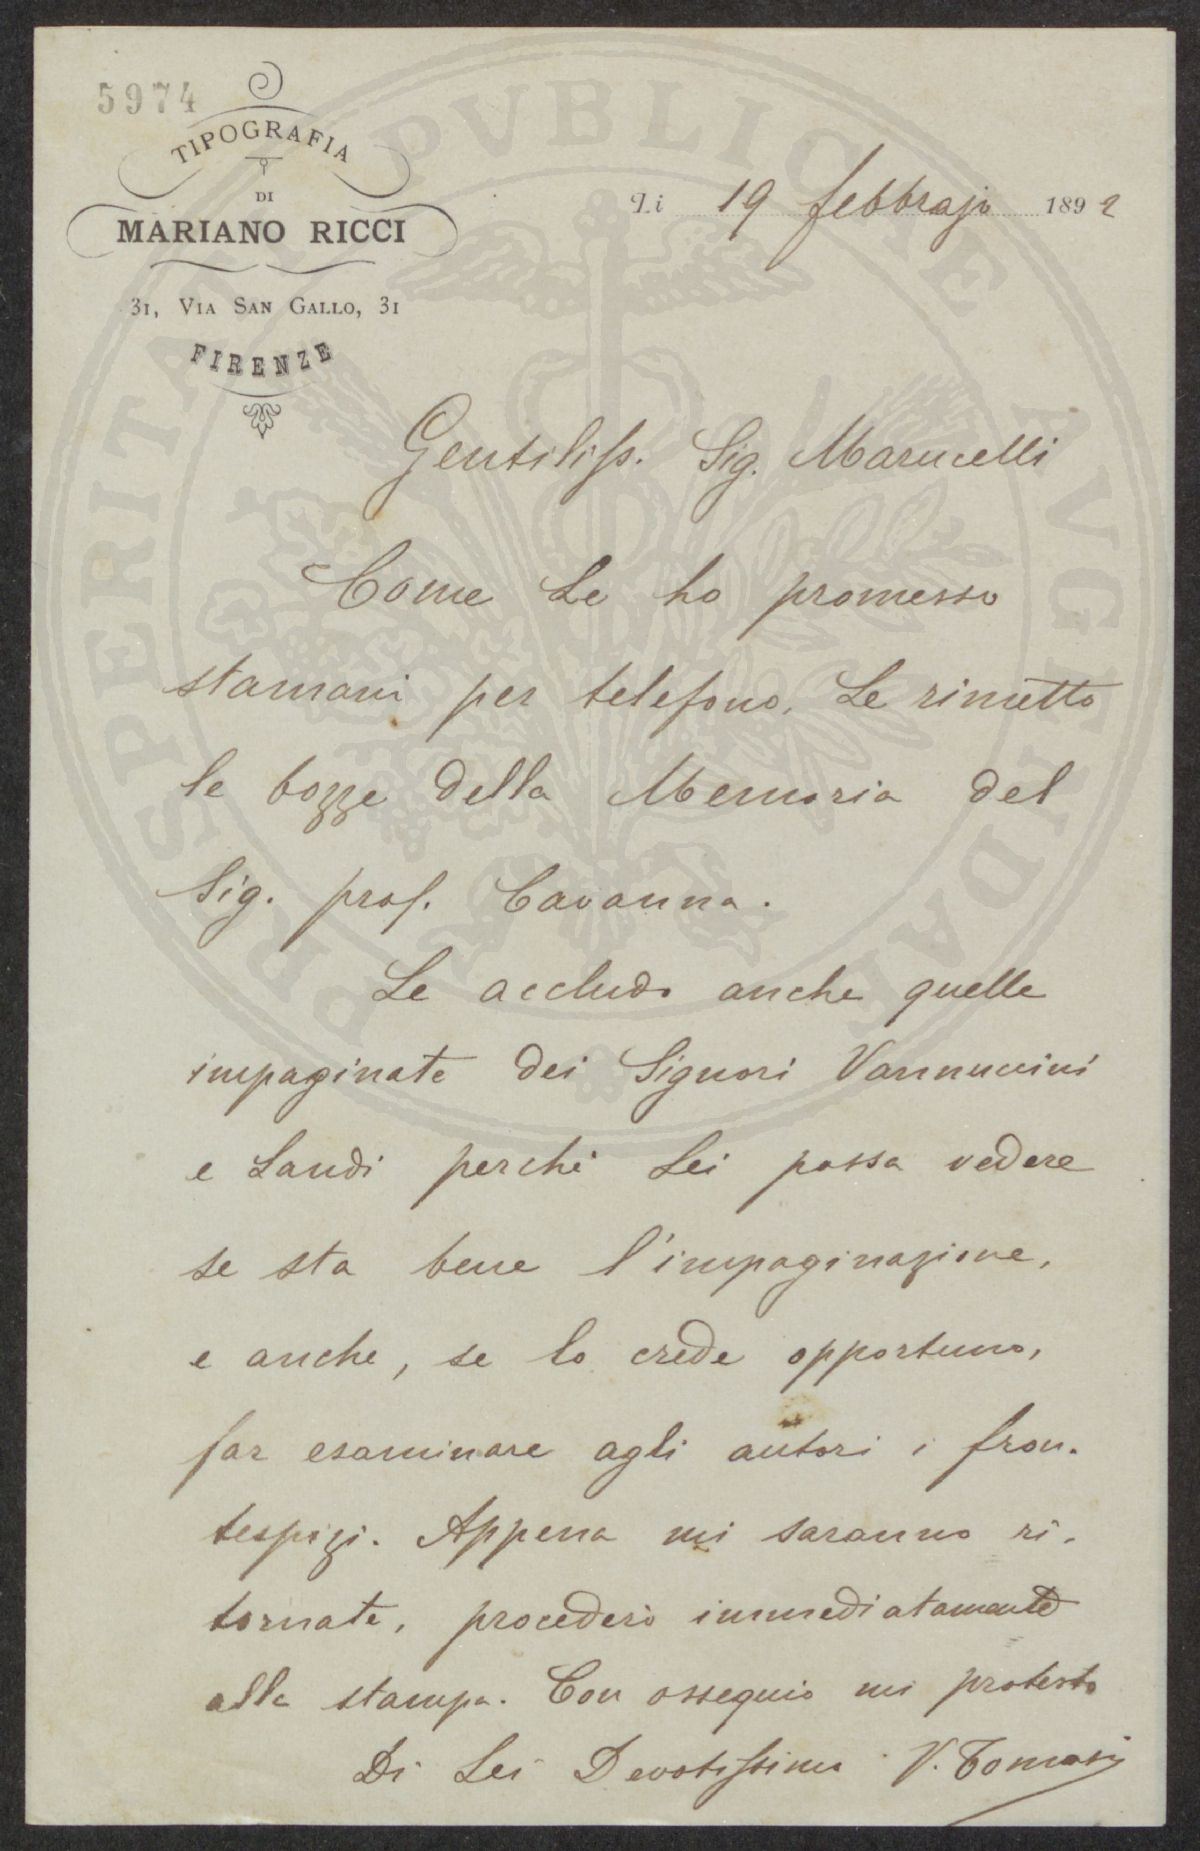 5974
TIPOGRAFIA
DI
MARIANO RICCI
31, VIA SAN GALLO, 31
FIRENZE
Li 19 febbrajo 1892
Gentiliss. Sig. Marucelli
Come Le ho promesso
stamani per telefono, Le rimetto
le bozze della Memoria del
Sig. prof. Cavanna.
Le accludo anche quelle
impaginate dei Signori Vannuccini
e Landi perchè Lei possa vedere
se sta bene l'impaginazione,
e anche, se lo crede opportuno,
far esaminare agli autori i fron-
tespizi. Appena mi saranno ri-
tornate, procederò immediatamente
alla stampa. Con ossequio mi protesto
Di Lei Devotissimo V. Tomasi
PROSPERITATI PVBLICAE AVGENDAE